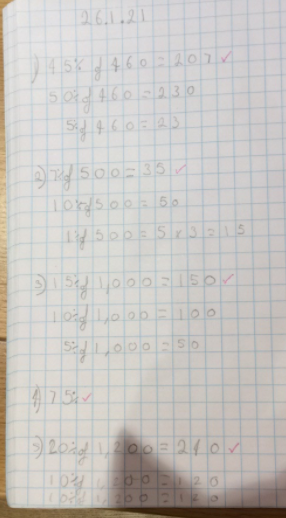 26.1.21
1) 45% of 460 = 207 ✓
50% of 460 = 230
5% of 460 = 23
2) 7% of 500 = 35 ✓
10% of 500 = 50
1% of 500 = 5 x 3 = 15
3) 15% of 1,000 = 150 ✓
10% of 1,000 = 100
5% of 1,000 = 50
4) 75% ✓
5) 20% of 1,200 = 240 ✓
10% of 1,200 = 120
10% of 1,200 = 120